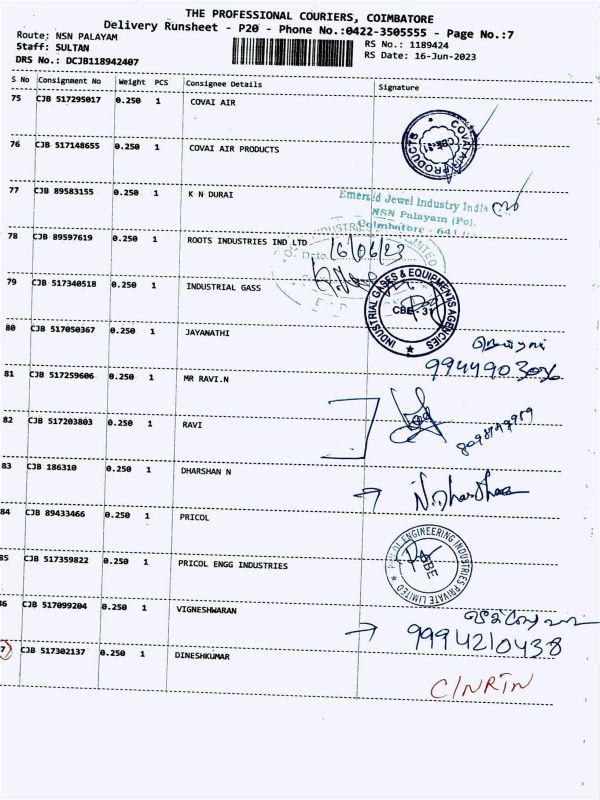 THE PROFESSIONAL COURIERS, COIMBATORE
Delivery Runsheet - P20 - Phone No.:0422-3505555 - Page No.:7
Route: NSN PALAYAM
Staff: SULTAN
DRS No.: DCJB118942407
RS No.: 1189424
RS Date: 16-Jun-2023
S No Consignment No Weight PCS Consignee Details Signature
75 CJB 517295017 0.250 1 COVAI AIR
COVAI AIR PRODUCTS
CBE-31
76 CJB 517148655 0.250 1 COVAI AIR PRODUCTS
77 CJB 89583155 0.250 1 K N DURAI
Emerald Jewel Industry India
NSN Palayam (Po).
Coimbatore - 641
78 CJB 89597619 0.250 1 ROOTS INDUSTRIES IND LTD
Date 16/06/23
79 CJB 517340518 0.250 1 INDUSTRIAL GASS
INDUSTRIAL GASES & EQUIPMENTS AGENCIES
CBE - 31
80 CJB 517050367 0.250 1 JAYANATHI
81 CJB 517259606 0.250 1 MR RAVI.N
82 CJB 517203803 0.250 1 RAVI
83 CJB 186310 0.250 1 DHARSHAN N
84 CJB 89433466 0.250 1 PRICOL
ENGINEERING INDUSTRIES PRIVATE LIMITED
CBE
85 CJB 517359822 0.250 1 PRICOL ENGG INDUSTRIES
86 CJB 517099204 0.250 1 VIGNESHWARAN
9994210438
7 CJB 517302137 0.250 1 DINESHKUMAR
C/NRTN